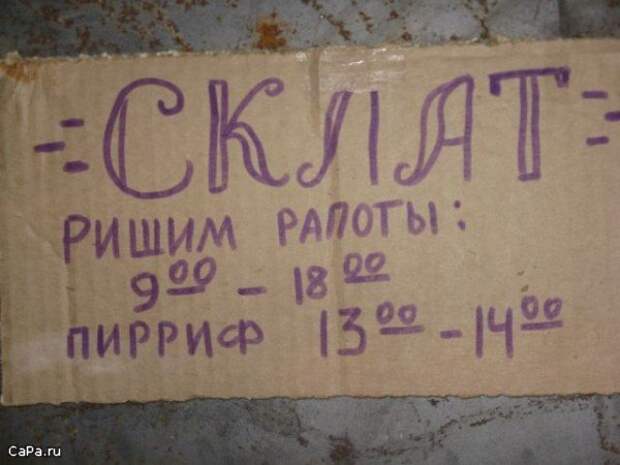 СКЛАТ
РИШИМ РАПОТЫ:
9⁰⁰ - 18⁰⁰
ПИРРИФ 13⁰⁰ - 14⁰⁰
CaPa.ru